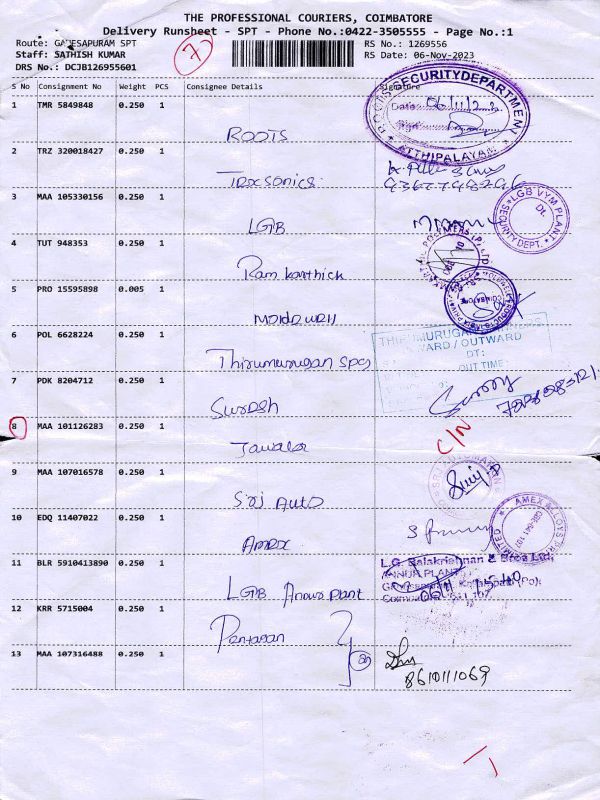 THE PROFESSIONAL COURIERS, COIMBATORE
Delivery Runsheet - SPT - Phone No.:0422-3505555 - Page No.:1
Route: GANESAPURAM SPT
Staff: SATHISH KUMAR
DRS No.: DCJB126955601
7
RS No.: 1269556
RS Date: 06-Nov-2023
S No Consignment No Weight PCS Consignee Details Signature
1 TMR 5849848 0.250 1
ROOTS
ROOTS SECURITY DEPARTMENT
Date: 06/11/23
ATTHIPALAYAM
2 TRZ 320018427 0.250 1
Troxsonics.
3 MAA 105330156 0.250 1
LGB
LGB VYM.PLANT
Dt.
SECURITY DEPT.
4 TUT 948353 0.250 1
Ram Karthick
5 PRO 15595898 0.005 1
6 POL 6628224 0.250 1
Thirumurugan Spg
THIRUMURUGAN
INWARD / OUTWARD
DT:
OUT TIME:
7 PDK 8204712 0.250 1
Suresh
8 MAA 101126283 0.250 1
C/N
9 MAA 107016578 0.250 1
Sri Auto
10 EDQ 11407022 0.250 1
Amex
AMEX ALLOYS PRIVATE LIMITED
CBE-641 107
11 BLR 5910413890 0.250 1
LGB Annur Plant
L.G. Balakrishnan & Bros Ltd,
ANNUR PLANT
Coimbatore - 641 107
12 KRR 5715004 0.250 1
Pentagan
13 MAA 107316488 0.250 1
8610111069